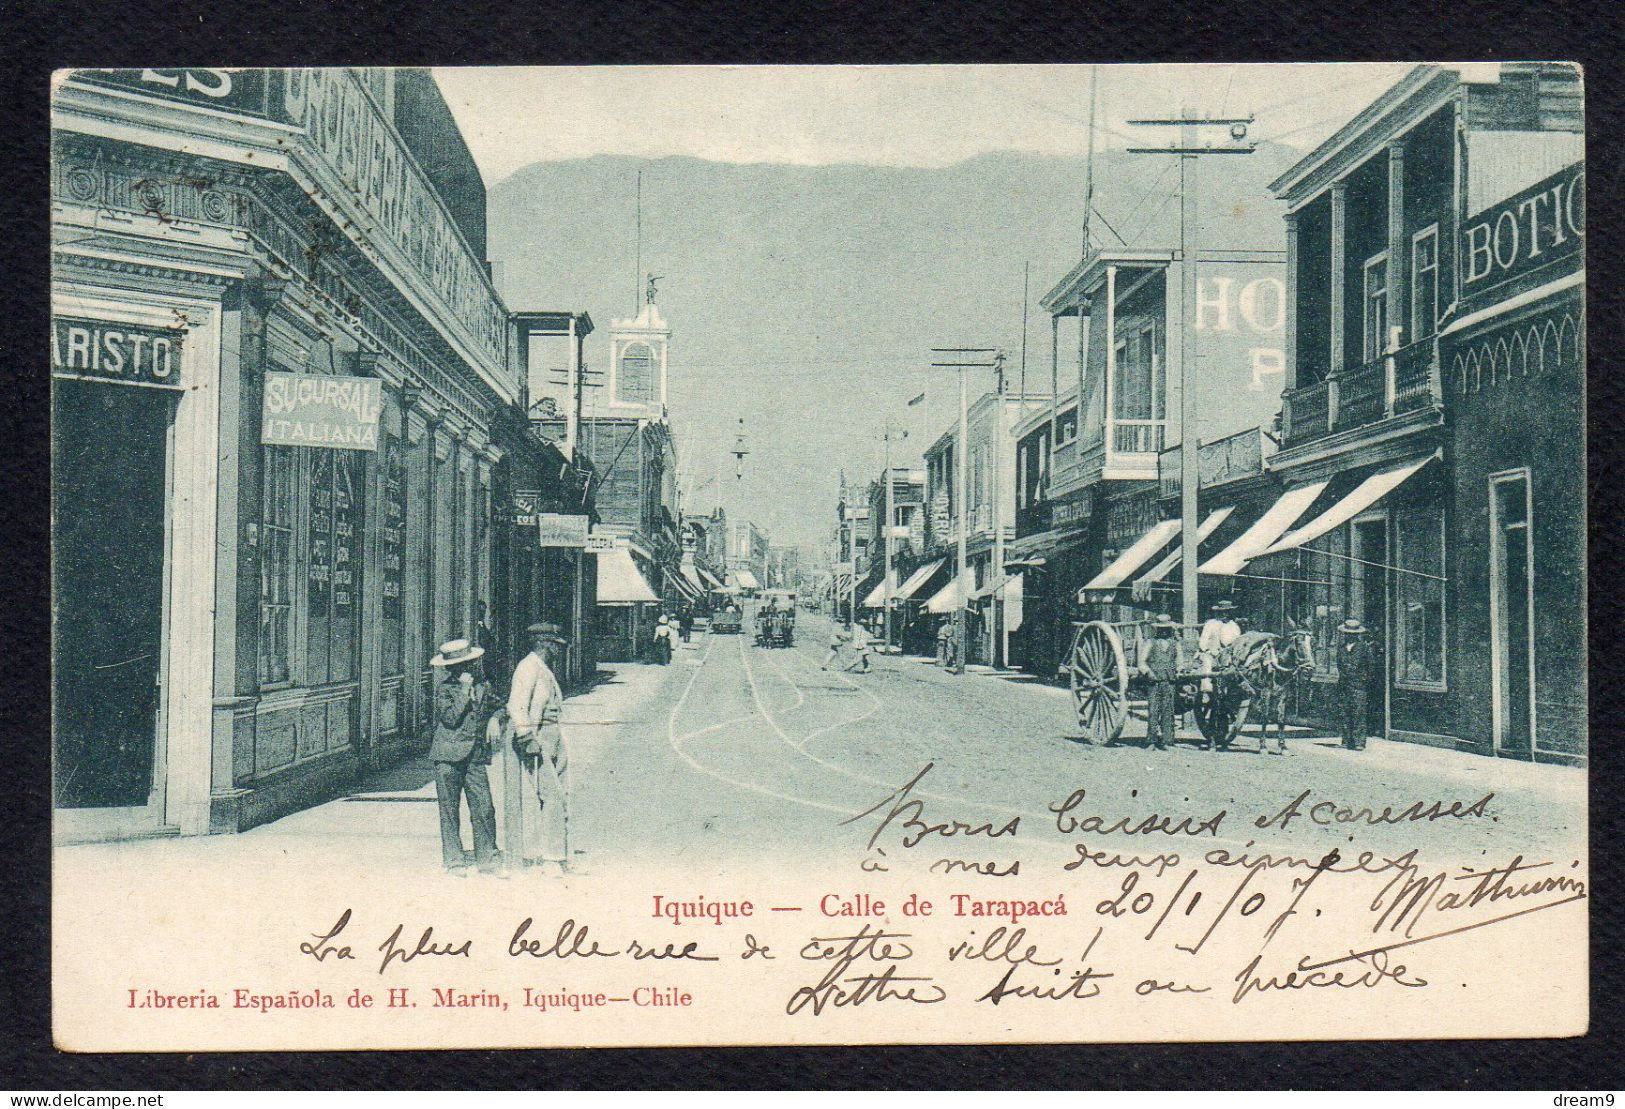 ES
ARISTO
SUCURSAL
ITALIANA
HO
P
BOTIC
Bons baisers et caresses.
à mes deux aimées
Iquique — Calle de Tarapacá 20/1/07. Mathurin
La plus belle rue de cette ville !
Lettre suit ou précède.
Libreria Española de H. Marin, Iquique—Chile
delcampe.net
dream9